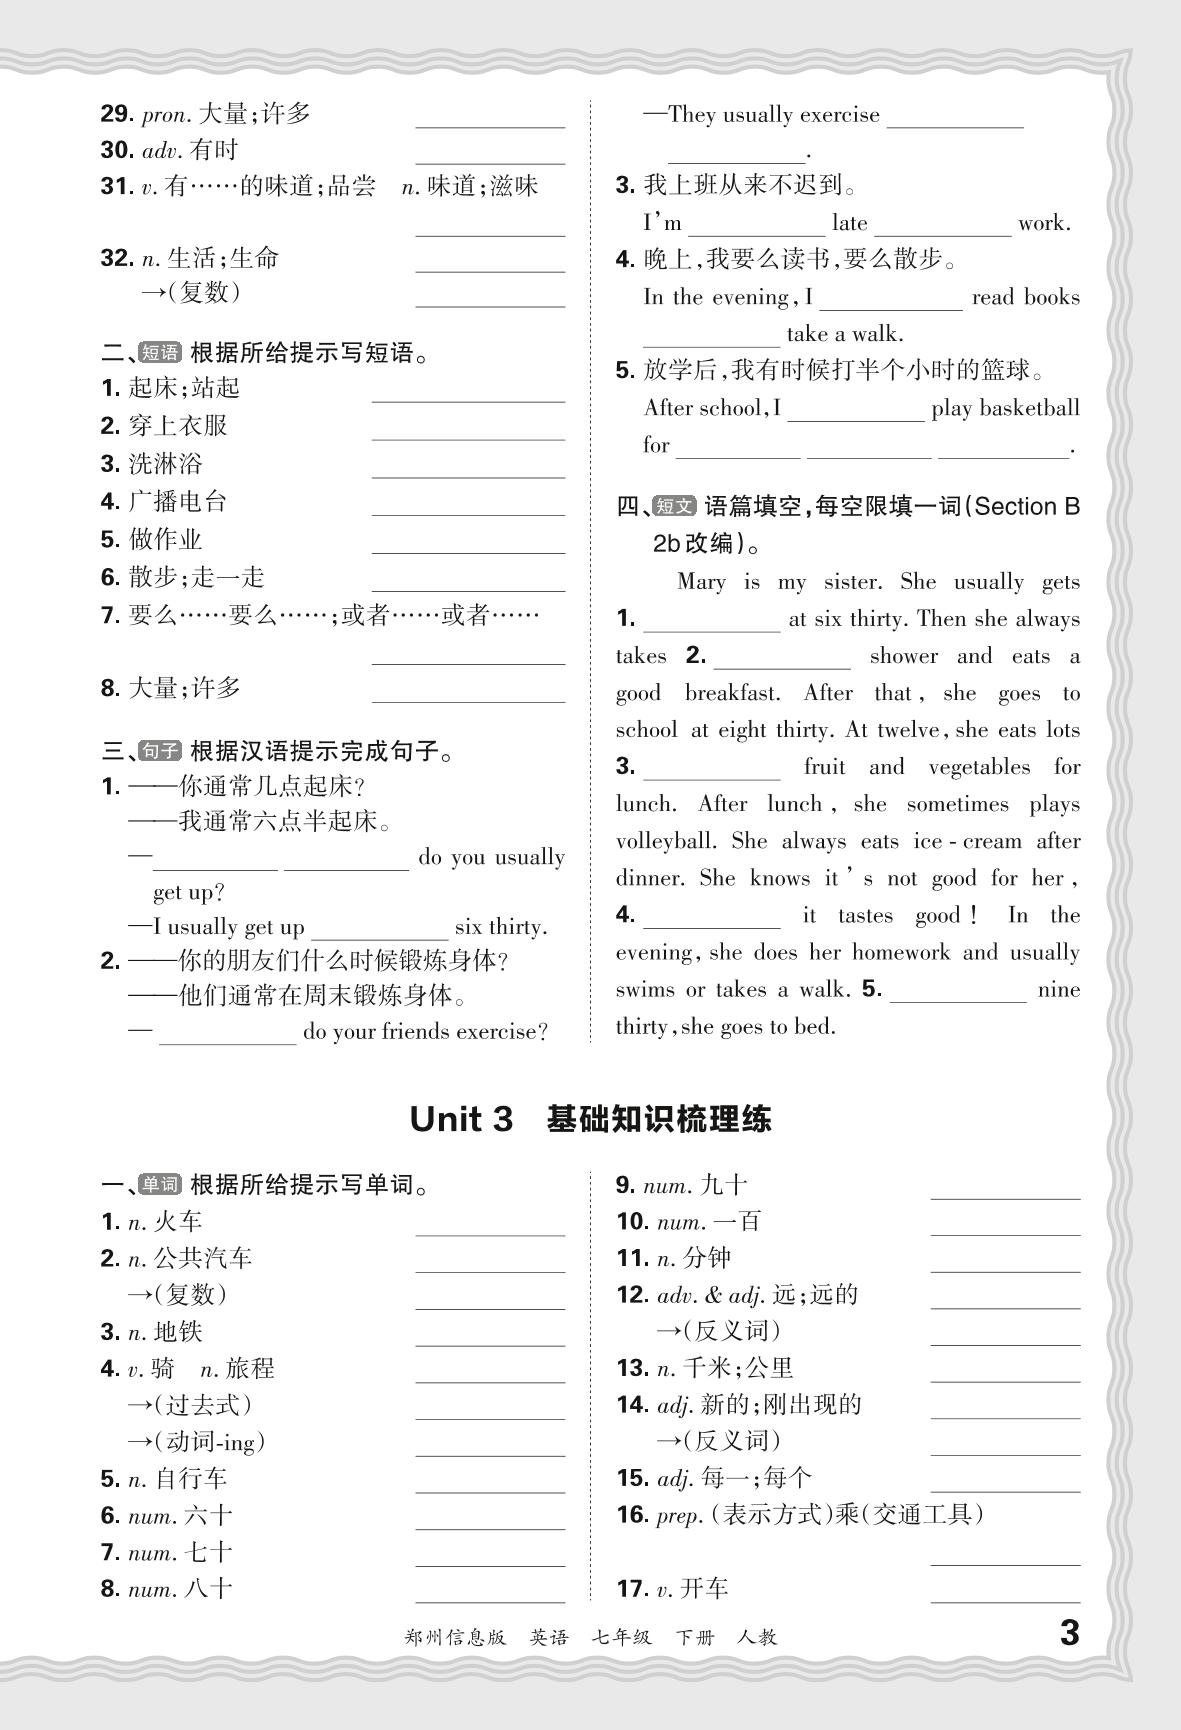 29. pron. 大量;许多 ____
30. adv. 有时 ____
31. v. 有……的味道;品尝 n. 味道;滋味
____
32. n. 生活;生命 ____
→(复数) ____
二、短语 根据所给提示写短语。
1. 起床;站起 ____
2. 穿上衣服 ____
3. 洗淋浴 ____
4. 广播电台 ____
5. 做作业 ____
6. 散步;走一走 ____
7. 要么……要么……;或者……或者……
____
8. 大量;许多 ____
三、句子 根据汉语提示完成句子。
1. ——你通常几点起床?
——我通常六点半起床。
—____ ____ do you usually
get up?
—I usually get up ____ six thirty.
2. ——你的朋友们什么时候锻炼身体?
——他们通常在周末锻炼身体。
— ____ do your friends exercise?
—They usually exercise ____
____.
3. 我上班从来不迟到。
I'm ____ late ____ work.
4. 晚上,我要么读书,要么散步。
In the evening, I ____ read books
____ take a walk.
5. 放学后,我有时候打半个小时的篮球。
After school, I ____ play basketball
for ____ ____ ____.
四、短文 语篇填空,每空限填一词(Section B
2b改编)。
Mary is my sister. She usually gets
1. ____ at six thirty. Then she always
takes 2. ____ shower and eats a
good breakfast. After that, she goes to
school at eight thirty. At twelve, she eats lots
3. ____ fruit and vegetables for
lunch. After lunch, she sometimes plays
volleyball. She always eats ice-cream after
dinner. She knows it's not good for her,
4. ____ it tastes good! In the
evening, she does her homework and usually
swims or takes a walk. 5. ____ nine
thirty, she goes to bed.
Unit 3 基础知识梳理练
一、单词 根据所给提示写单词。
1. n. 火车 ____
2. n. 公共汽车 ____
→(复数) ____
3. n. 地铁 ____
4. v. 骑 n. 旅程 ____
→(过去式) ____
→(动词-ing) ____
5. n. 自行车 ____
6. num. 六十 ____
7. num. 七十 ____
8. num. 八十 ____
9. num. 九十 ____
10. num. 一百 ____
11. n. 分钟 ____
12. adv. & adj. 远;远的 ____
→(反义词) ____
13. n. 千米;公里 ____
14. adj. 新的;刚出现的 ____
→(反义词) ____
15. adj. 每一;每个 ____
16. prep. (表示方式)乘(交通工具)
____
17. v. 开车 ____
郑州信息版 英语 七年级 下册 人教
3